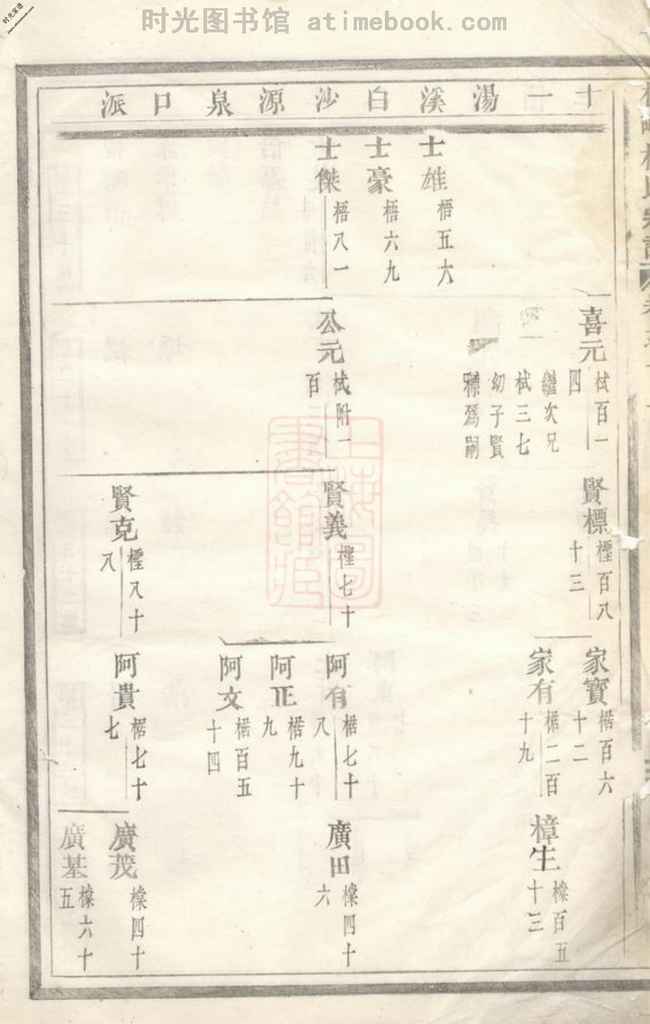 时光图书馆 atimebook.com
时光家谱
十一湯溪白沙源泉口派
士雄 梧五六
士豪 梧六九
士傑 梧八一
喜元 栻百一
四
繼次兄
栻三七
幼子賢
標爲嗣
公元 栻附一
百
賢標 樫百八
十三
賢義 樫七十
賢克 樫八十
八
家寶 楛百六
十二
家有 楛二百
十九
阿有 楛七十
八
阿正 楛九十
九
阿文 楛百五
十四
阿貴 楛七十
七
樟生 橡百五
十三
廣田 橡四十
六
廣茂 橡四十
廣基 橡六十
五